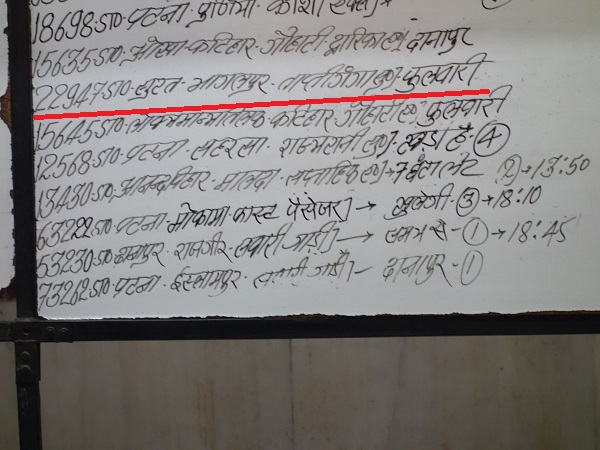 18698-SIO-पटना पूर्णिया कोशी
15635-SIO-ओखा-कटिहार-गौहाटी द्वारिका(ए०) दानापुर
22947-SIO-सुरत-भागलपुर-ताप्तीगंगा(ए०) फुलवारी
15645-SIO-लोकमान्यतिलक कटिहार गौहाटी(ए०) फुलवारी
12568-SIO-पटना-सहरसा-राजरानी(ए०) खड़ा है-④
13430-SIO-आनन्दविहार-मालदा-साप्ताहिक(ए०)→7 घंटा लेट ②→17:50
63222-SIO-पटना-मोकामा फास्ट पैसेंजर)→ खुलेगी-③→18:10
53230-SIO-दानापुर-राजगीर-सवारी गाड़ी)→ समय से-①→18:45
73262-SIO-पटना-ईस्लामपुर-(सवारी गाड़ी)- दानापुर-①